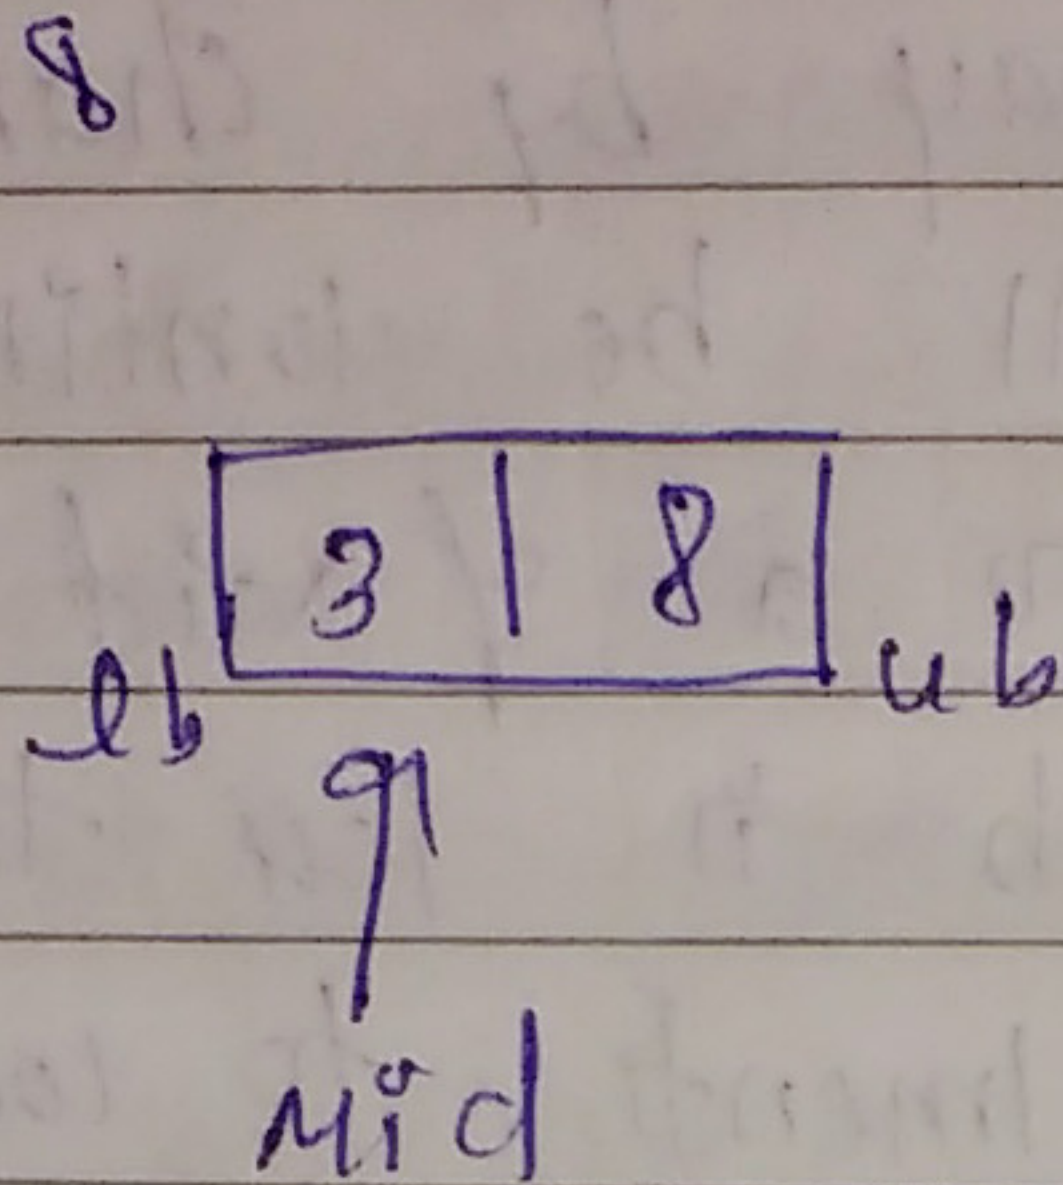 8
3 8
lb ub
Mid